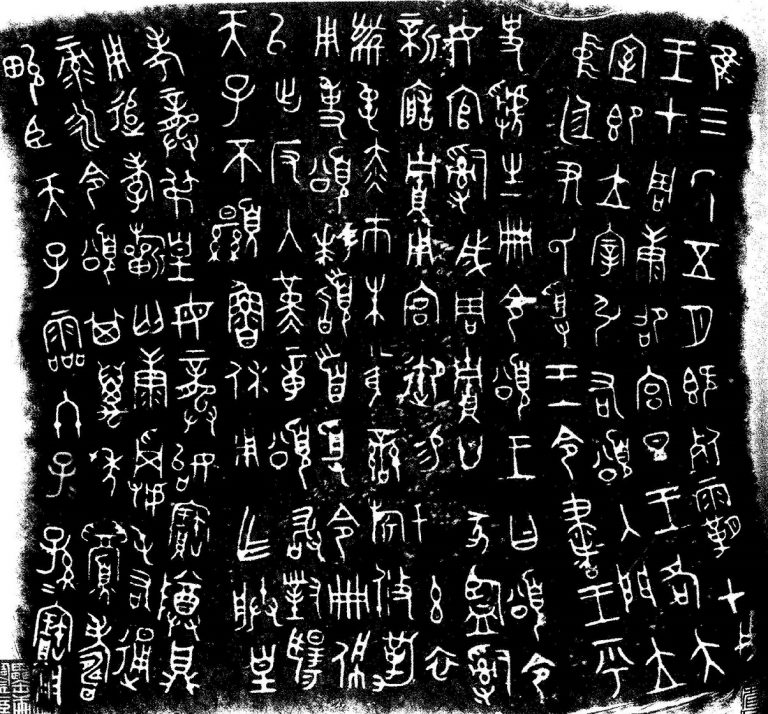 隹三年五月既死霸甲戌
王才周康卲宮旦王各大
室即立宰引右頌入門立
中廷尹氏受王令書王乎
史虢生冊令頌王曰頌令
女官𤔲成周貯廿家監𤔲
新造貯用宮御易女玄衣
黹屯赤巿朱黃䜌旂攸勒
用事頌拜𩒨首受令冊佩
以出反入堇章頌敢對揚
天子不顯魯休用乍朕皇
考龏弔皇母龏始寶尊鼎
用追孝祈匄康𩛥屯右通
彔永令頌其萬年眉壽
畯臣天子霝冬子孫＝寶用